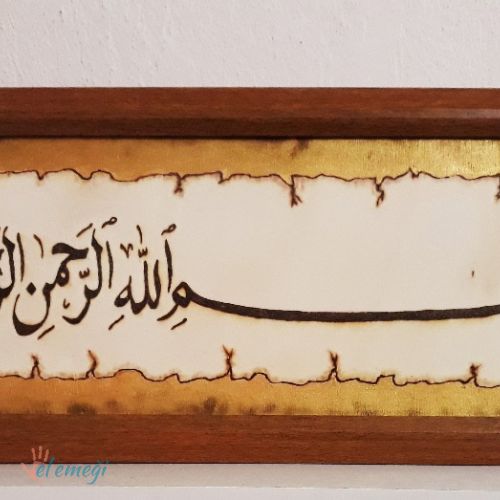 ـمِ ٱللّٰهِ ٱلرَّحْمٰنِ ٱلر
el emeği